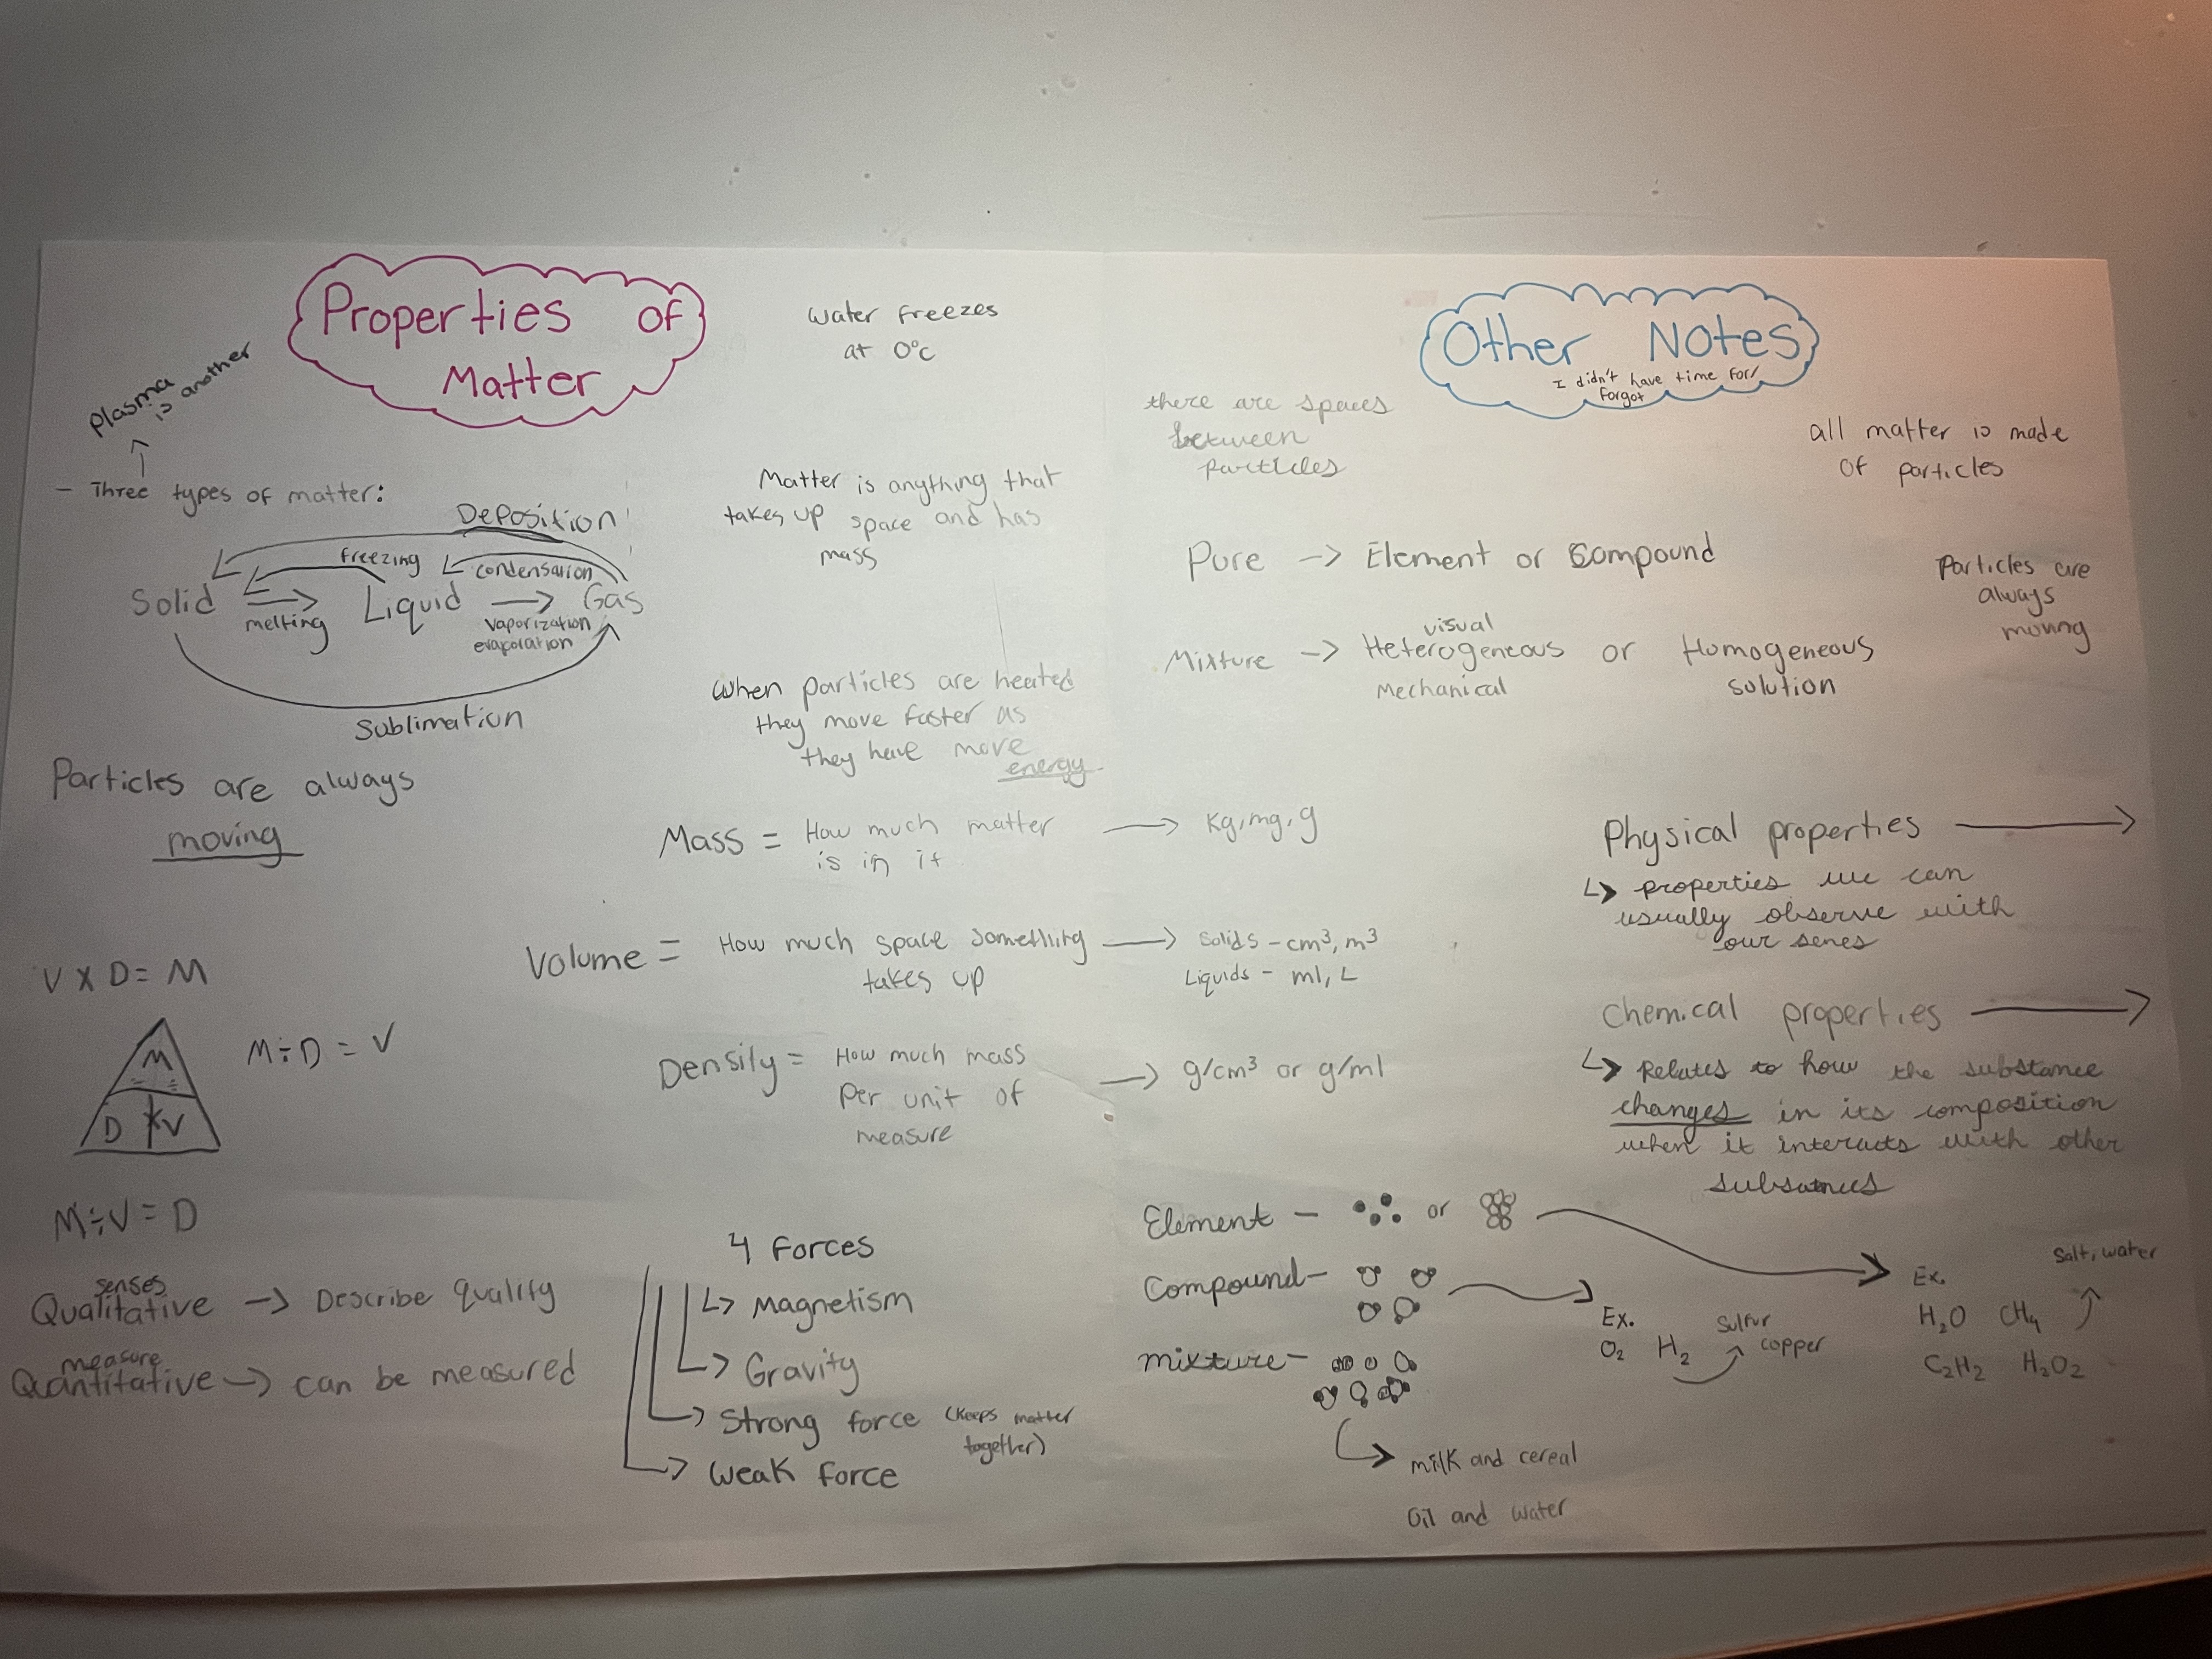 Properties of
Matter
plasma is another
- Three types of matter:
Deposition
freezing
condensation
Solid
Liquid
Gas
melting
vaporization
evaporation
Sublimation
Particles are always
moving
V x D = M
M ÷ D = V
M
D x V
M ÷ V = D
senses
Qualitative → Describe quality
measure
Quantitative → can be measured
water freezes
at 0°c
Matter is anything that
takes up space and has
mass
when particles are heated
they move faster as
they have more
energy
Mass = How much matter → kg, mg, g
is in it
Volume = How much space something → solids - cm³, m³
takes up
Liquids - ml, L
Density = How much mass → g/cm³ or g/ml
per unit of
measure
4 forces
↳ Magnetism
↳ Gravity
↳ Strong force (keeps matter
together)
↳ Weak force
Other Notes
I didn't have time for/
forgot
there are spaces
between
particles
all matter is made
of particles
Pure → Element or Compound
Particles are
always
moving
visual
Mixture → Heterogeneous or Homogeneous
Mechanical
solution
Physical properties
↳ properties we can
usually observe with
our senses
chemical properties
↳ Relates to how the substance
changes in its composition
when it interacts with other
substances
Element - or
Compound-
mixture-
milk and cereal
Oil and water
Ex.
O₂ H₂ sulfur
copper
Ex.
salt, water
H₂O CH₄
C₂H₂ H₂O₂